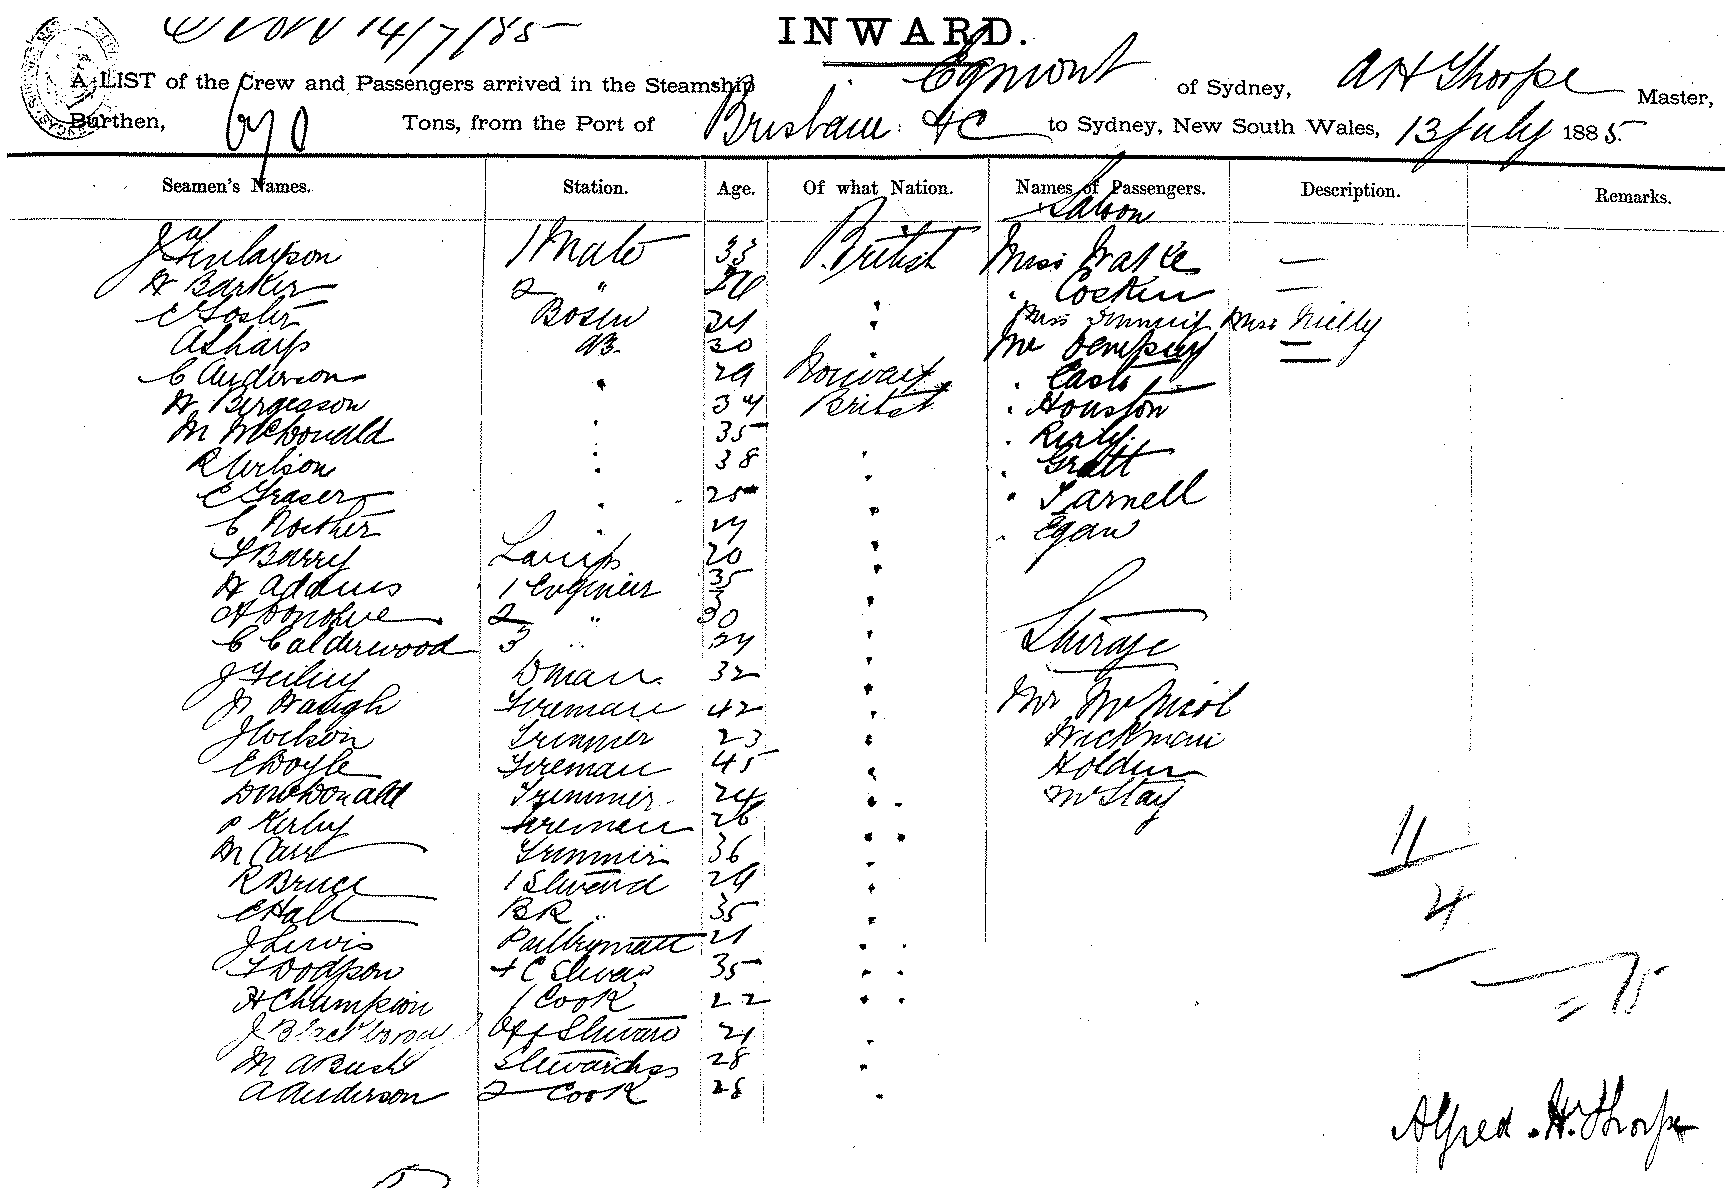 14/7/85
INWARD.
A LIST of the Crew and Passengers arrived in the Steamship Egmont of Sydney, A H Thorpe Master,
Burthen, 670 Tons, from the Port of Brisbane &C to Sydney, New South Wales, 13 July 1885.
Seamen's Names. Station. Age. Of what Nation. Names of Passengers. Description. Remarks.
Saloon
J Finlayson 1 Mate 33 British Miss Walke —
H Barker 2 " " —
C Foster Bosun 24 " Miss Miss Nielly
A Sharp AB. 30 " Mr Dempsey =
C Anderson " 29 Norway "
H Bergesson " 34 British " Houston
M McDonald " 35 " Kirby
R Wilson " 38 " " Gratt
C Fraser " 25 " " Farnell
C " 24 " " Egan
F Barry Lamps 20 "
H Addms 1 Engineer 35 "
A Donohue 2 " 30 " Steerage
C Calderwood 3 " 24 "
J Dman 32 " Mr McNicol
J Waugh Fireman 42 " Wickman
J Wilson Trimmer 23 " Holden
E Doyle Fireman 45 " McStay
D McDonald Trimmer 24 "
P Kirby Fireman 26 " 11
M Carr Trimmer 36 " 4
R Bruce 1 Steward 29 " — 15
C Hall BR " 35 "
J Lewis Pantryman 21 "
F Dodgson F C Steward 35 "
H Champion 1 Cook 22 "
J Off Steward 21 "
M A Bush Stewardess 28 "
A Anderson 2 Cook 28 "
Alfred . H. Thorpe